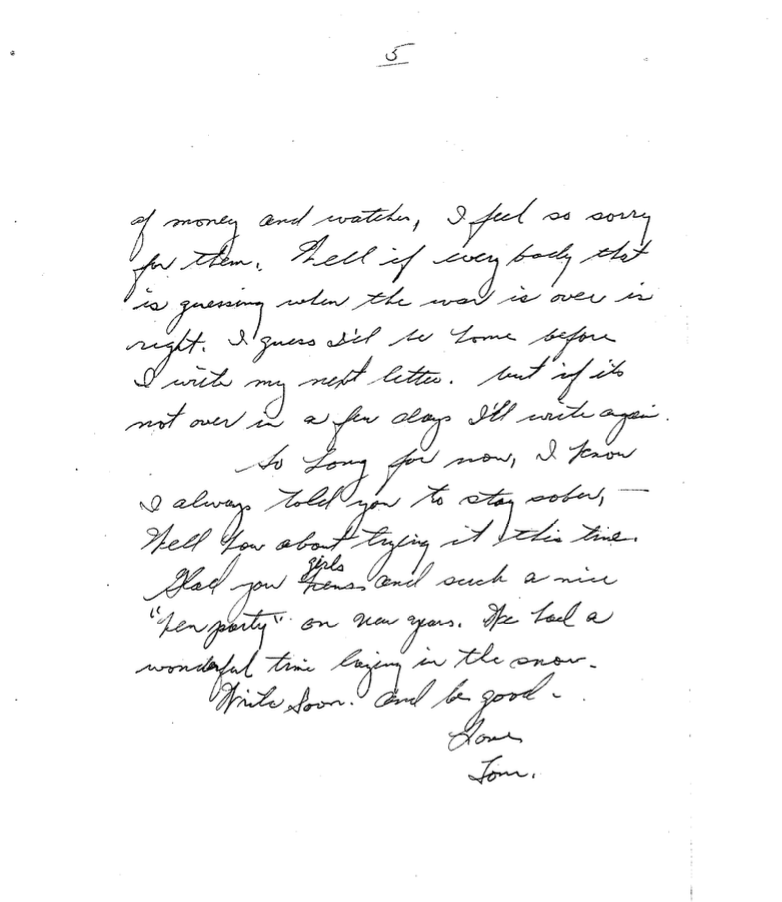 5
of money and watches, I feel so sorry
for them. Well if every body that
is guessing when the war is over is
right. I guess I'll be home before
I write my next letter. but if its
not over in a few days I'll write again.
So long for now, I know
I always told you to stay sober, —
Well how about trying it this time.
girls
Glad you hens and such a nice
"hen party" on new years. We had a
wonderful time laying in the snow.
Write Soon. and be good.
Love
Tom.